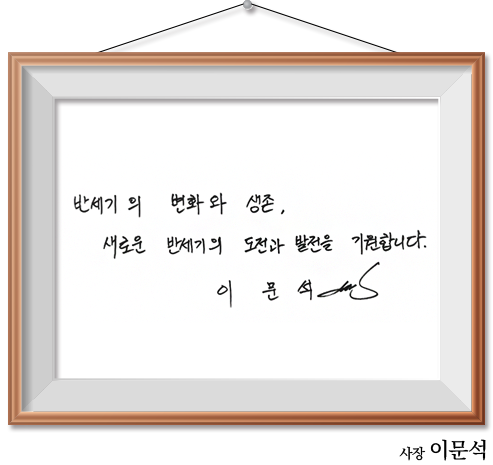 반세기의 변화와 생존,
새로운 반세기의 도전과 발전을 기원합니다.
이 문 석
사장 이문석